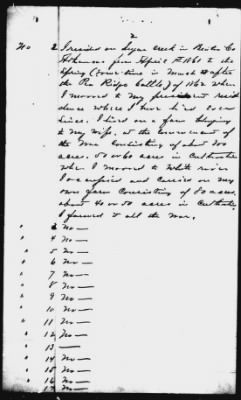 2
No 2 I resided on Sugar Creek in Benton Co
Arkansas from April 1st 1861 to the
Spring (some time in March after
the Pea Ridge battle) of 1862 when
I moved to my present resi
dence where I have lived ever
since. I lived on a farm belonging
to my wife, at the commencement of
the War consisting of about 200
acres. 50 or 60 acres in Cultivation
When I moved to White river
I occupied and Carried on my
own farm Consisting of 80 acres
about 40 or 50 acres in Cultivation
I farmed it all the War.
" 3 No —
" 4 No —
" 5 No —
" 6 No —
" 7 No —
" 8 No —
" 9 No —
" 10 No —
" 11 No —
" 12 No —
" 13 —
" 14 No —
" 15 No —
" 16 No —
" 17 No —